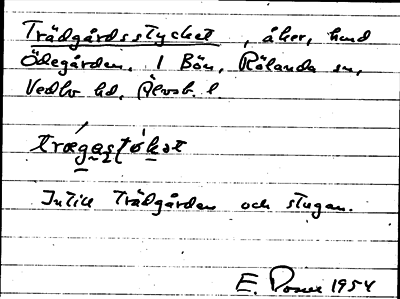 Trädgårdsstycket, åker, hmd
Ödegården, 1 Bön, Rölanda sn,
Vedbo hd, Älvsb. l.
trægastøkət
Intill Trädgården och stugan.
E. 1954